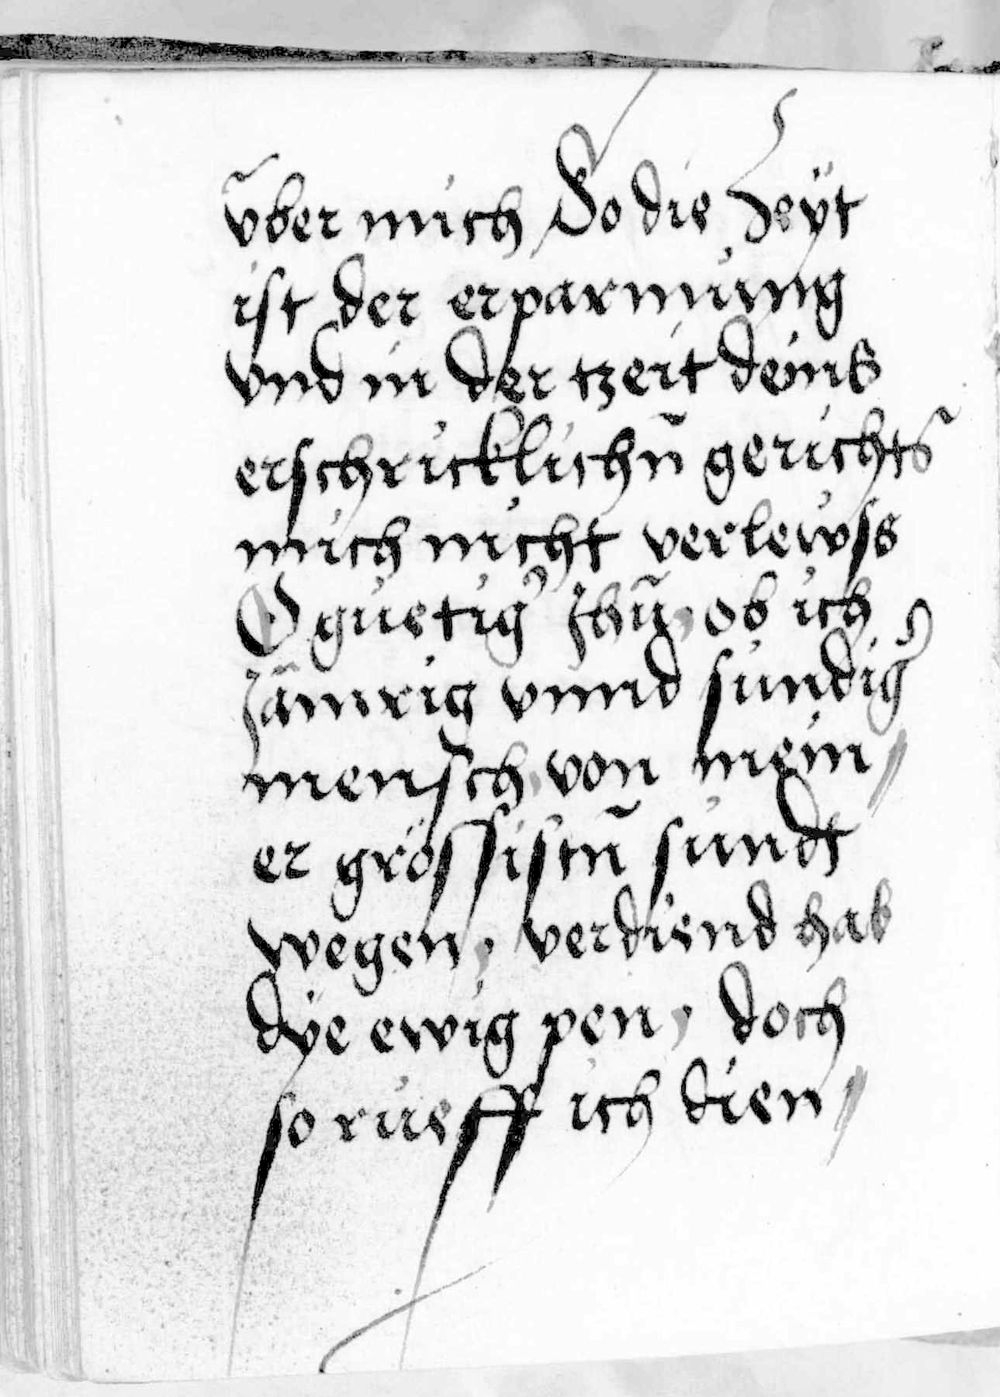 v̈ber mich So die Zeÿt
ist der erparmung
vnd in der tzeit deins
erschricklichn̄ gerichts
mich nicht verlewss
O guetig' Jhū, ob ich
Jämrig vnnd sündig'
mensch, von mein/
er grössistn̄ sündt
wegen, verdiend hab
dÿe ewig pen, doch
so rueff ich dien/